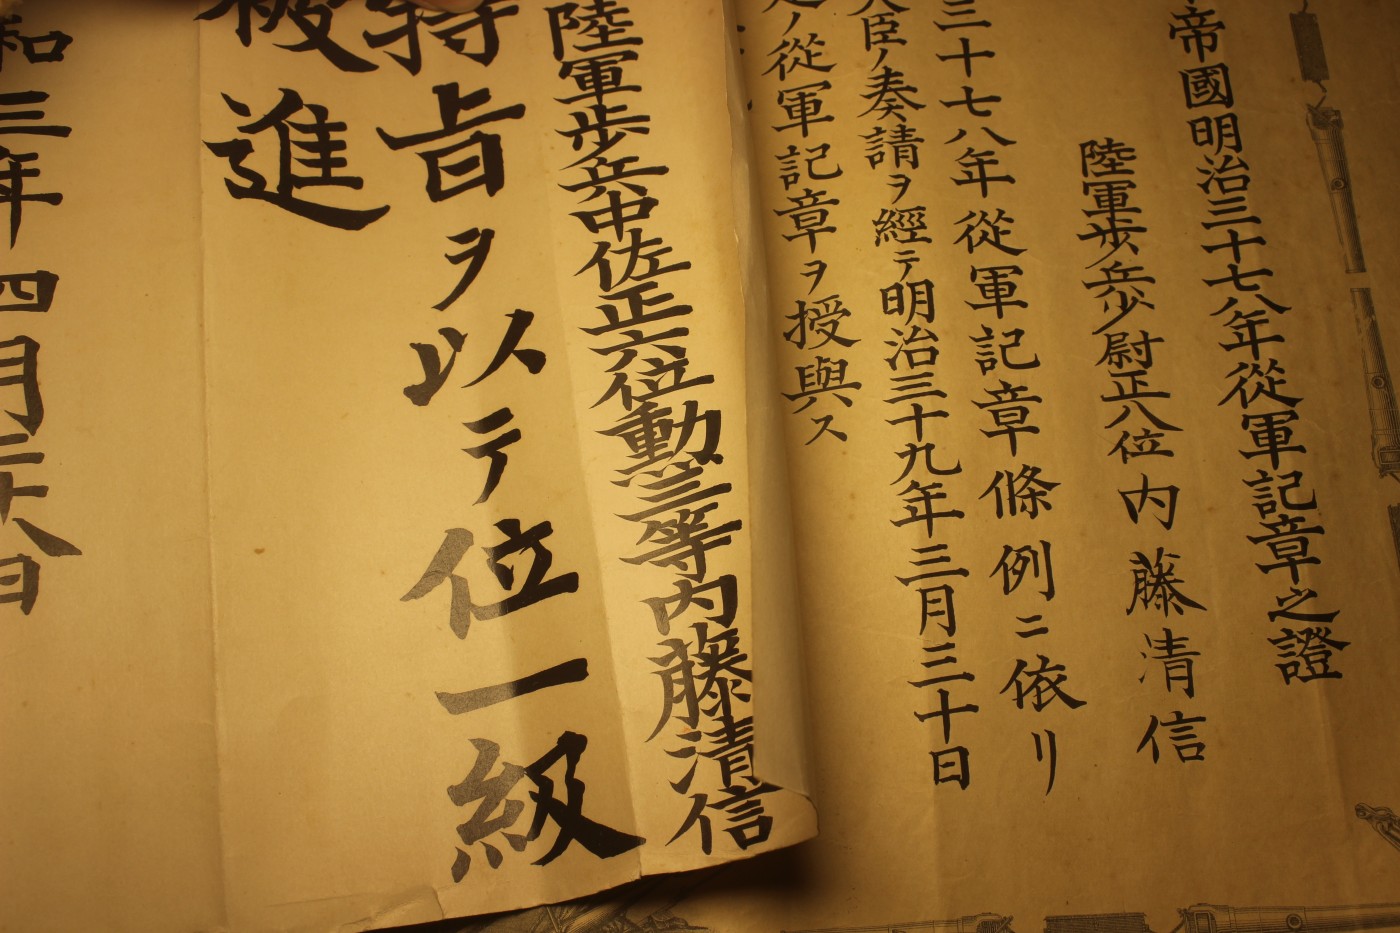 帝國明治三十七八年從軍記章之證
陸軍歩兵少尉正八位内藤清信
三十七八年從軍記章條例ニ依リ
大臣ノ奏請ヲ經テ明治三十九年三月三十日
ノ從軍記章ヲ授與ス
陸軍歩兵中佐正六位勳三等内藤清信
特旨ヲ以テ位一級
被進
和三年四月二十八日